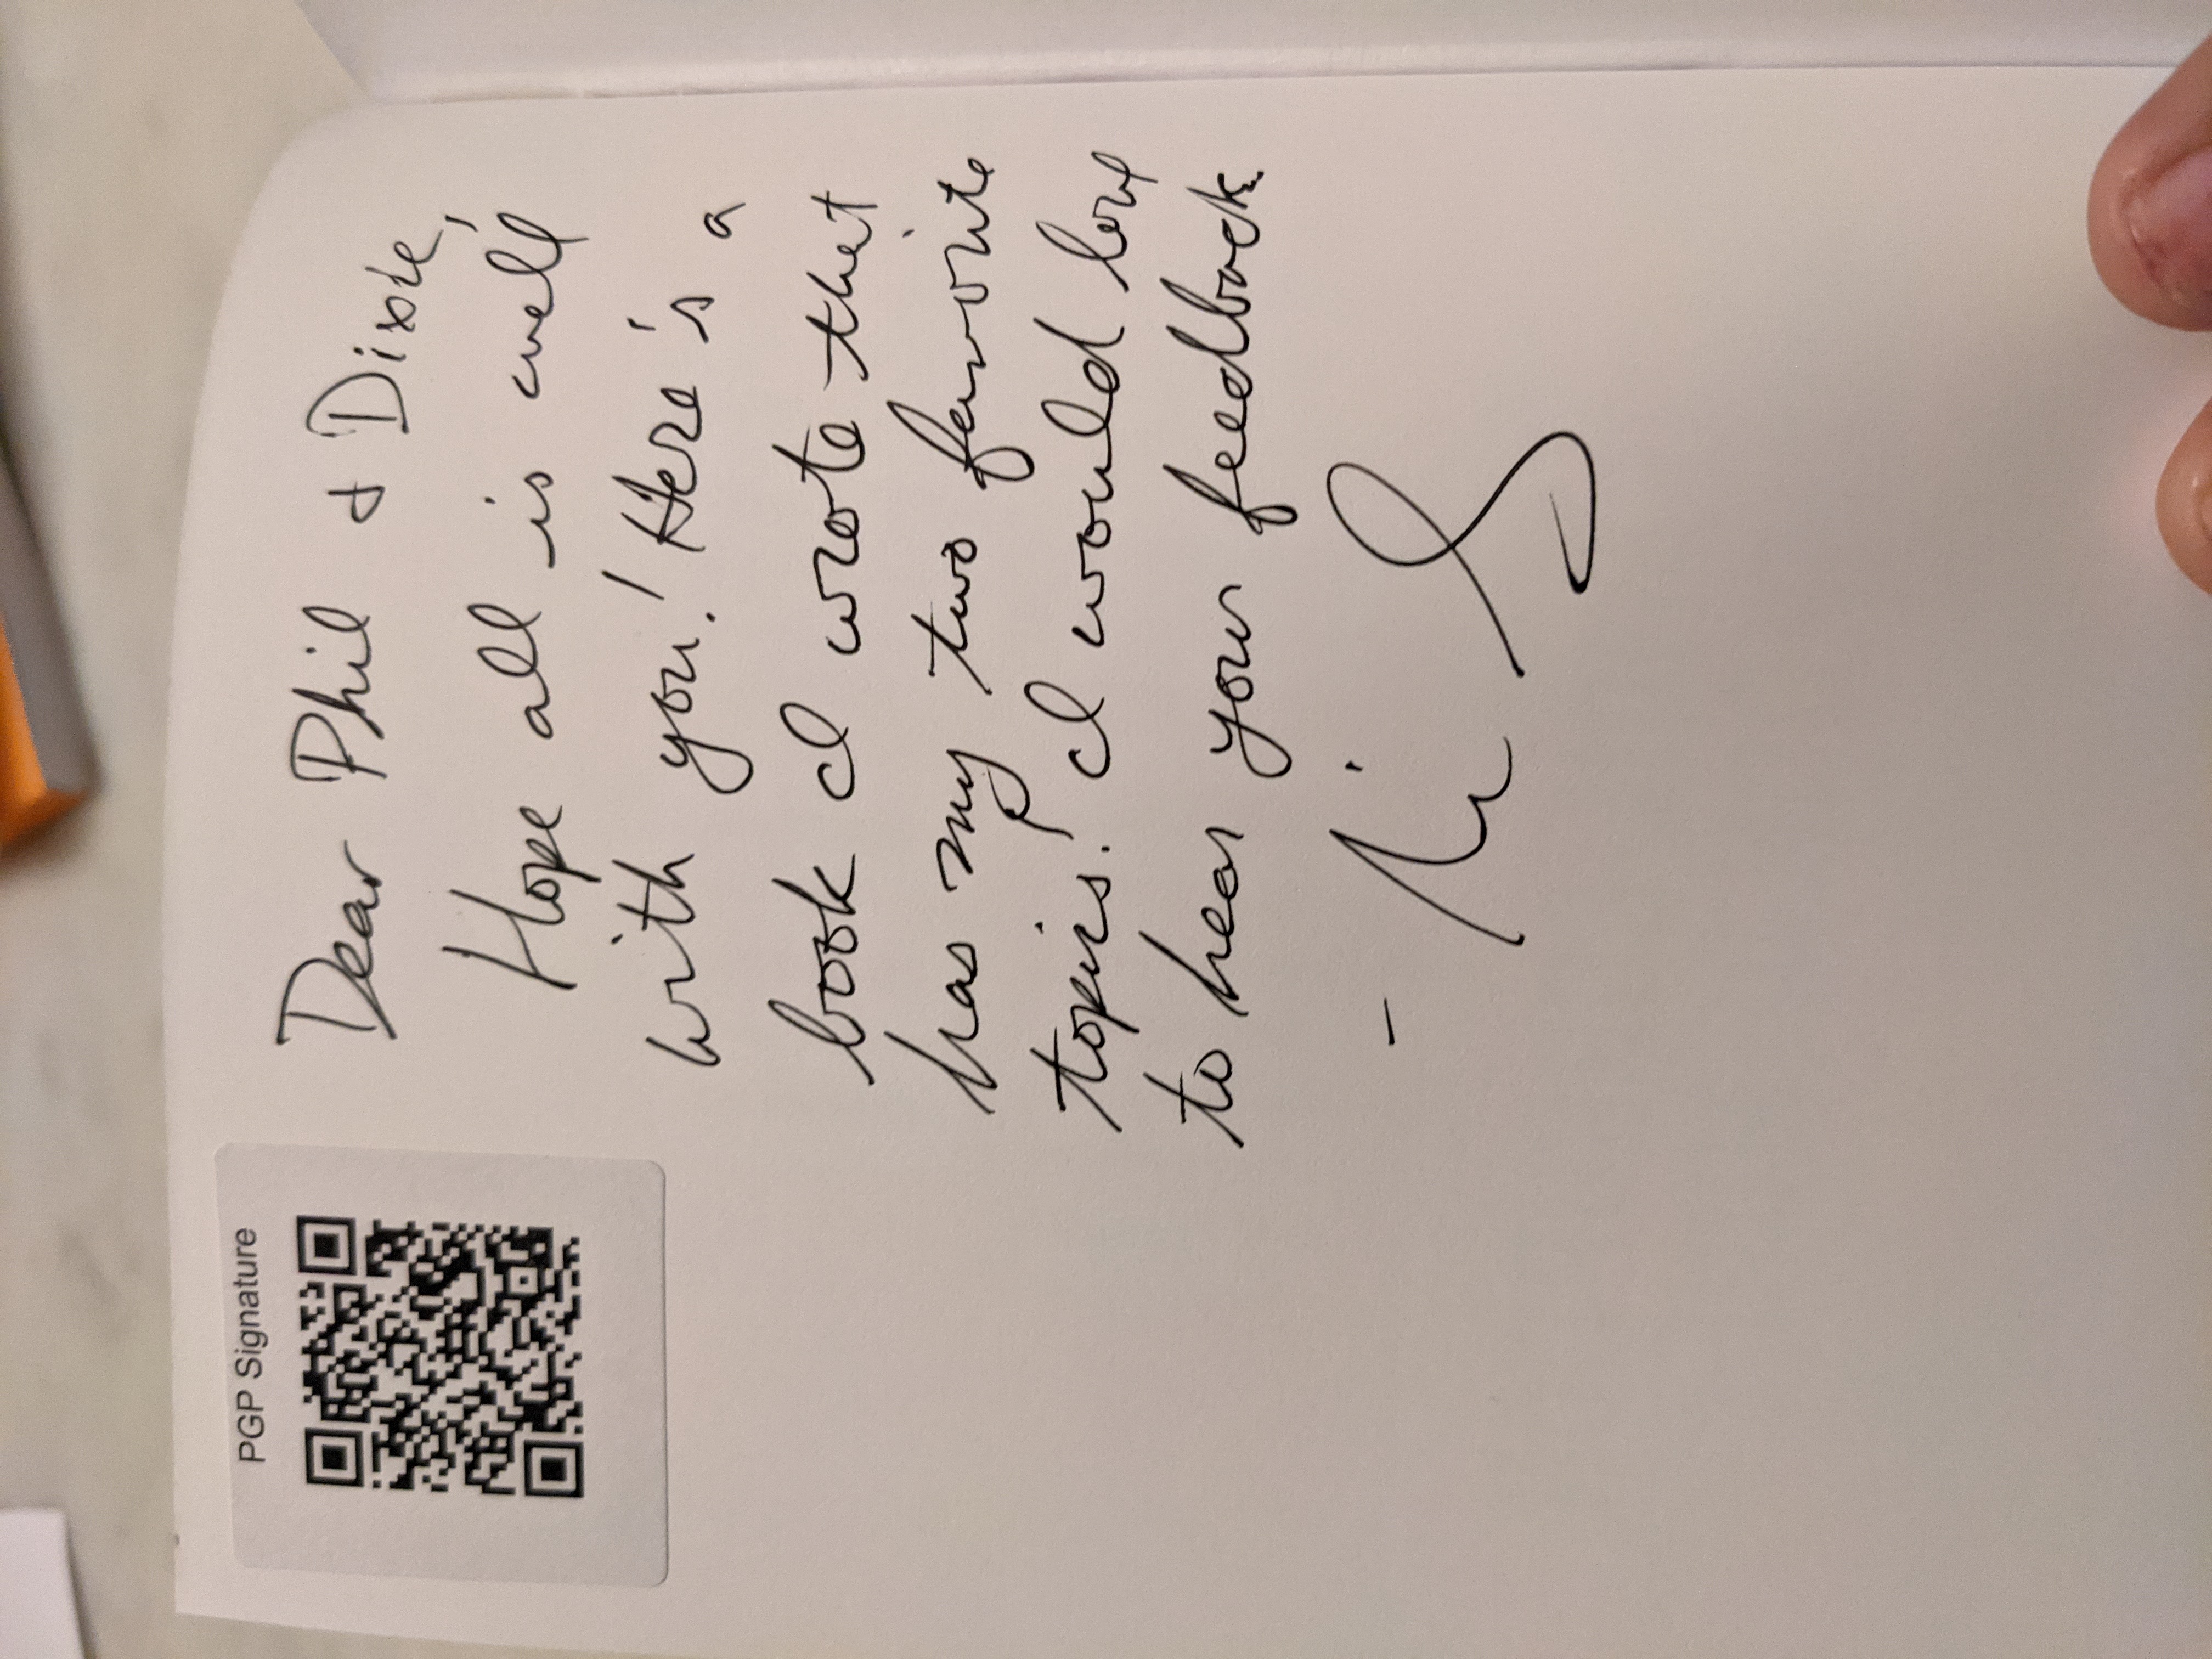 PGP Signature
Dear Phil & Dixie,
Hope all is well
with you! Here's a
book I wrote that
has my two favorite
topics. I would love
to hear your feedback.
-